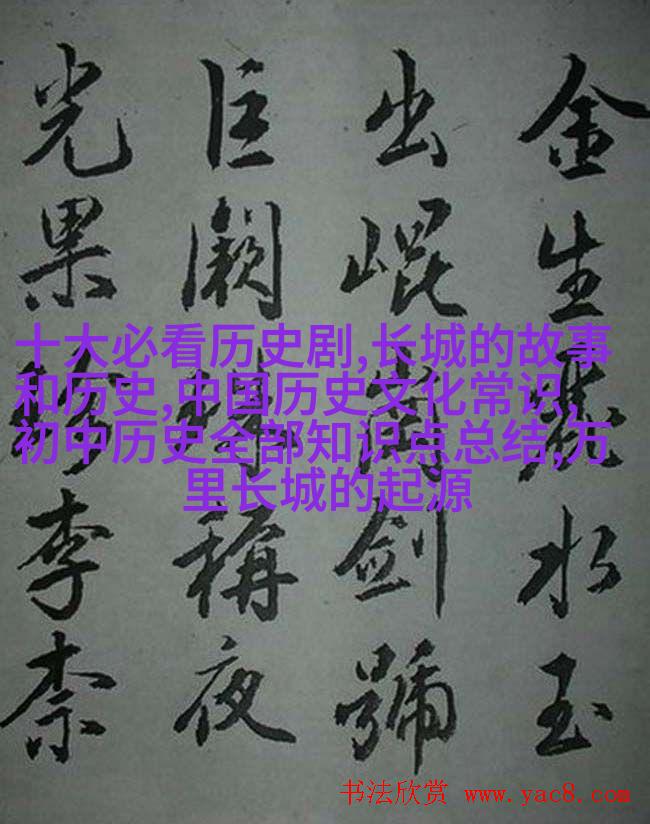 金生麗水玉
出崐岡劍號
巨闕珠稱夜
光果珍李柰
十大必看历史剧,长城的故事
和历史,中国历史文化常识,
初中历史全部知识点总结,万
里长城的起源
书法欣赏 www.yac8.com